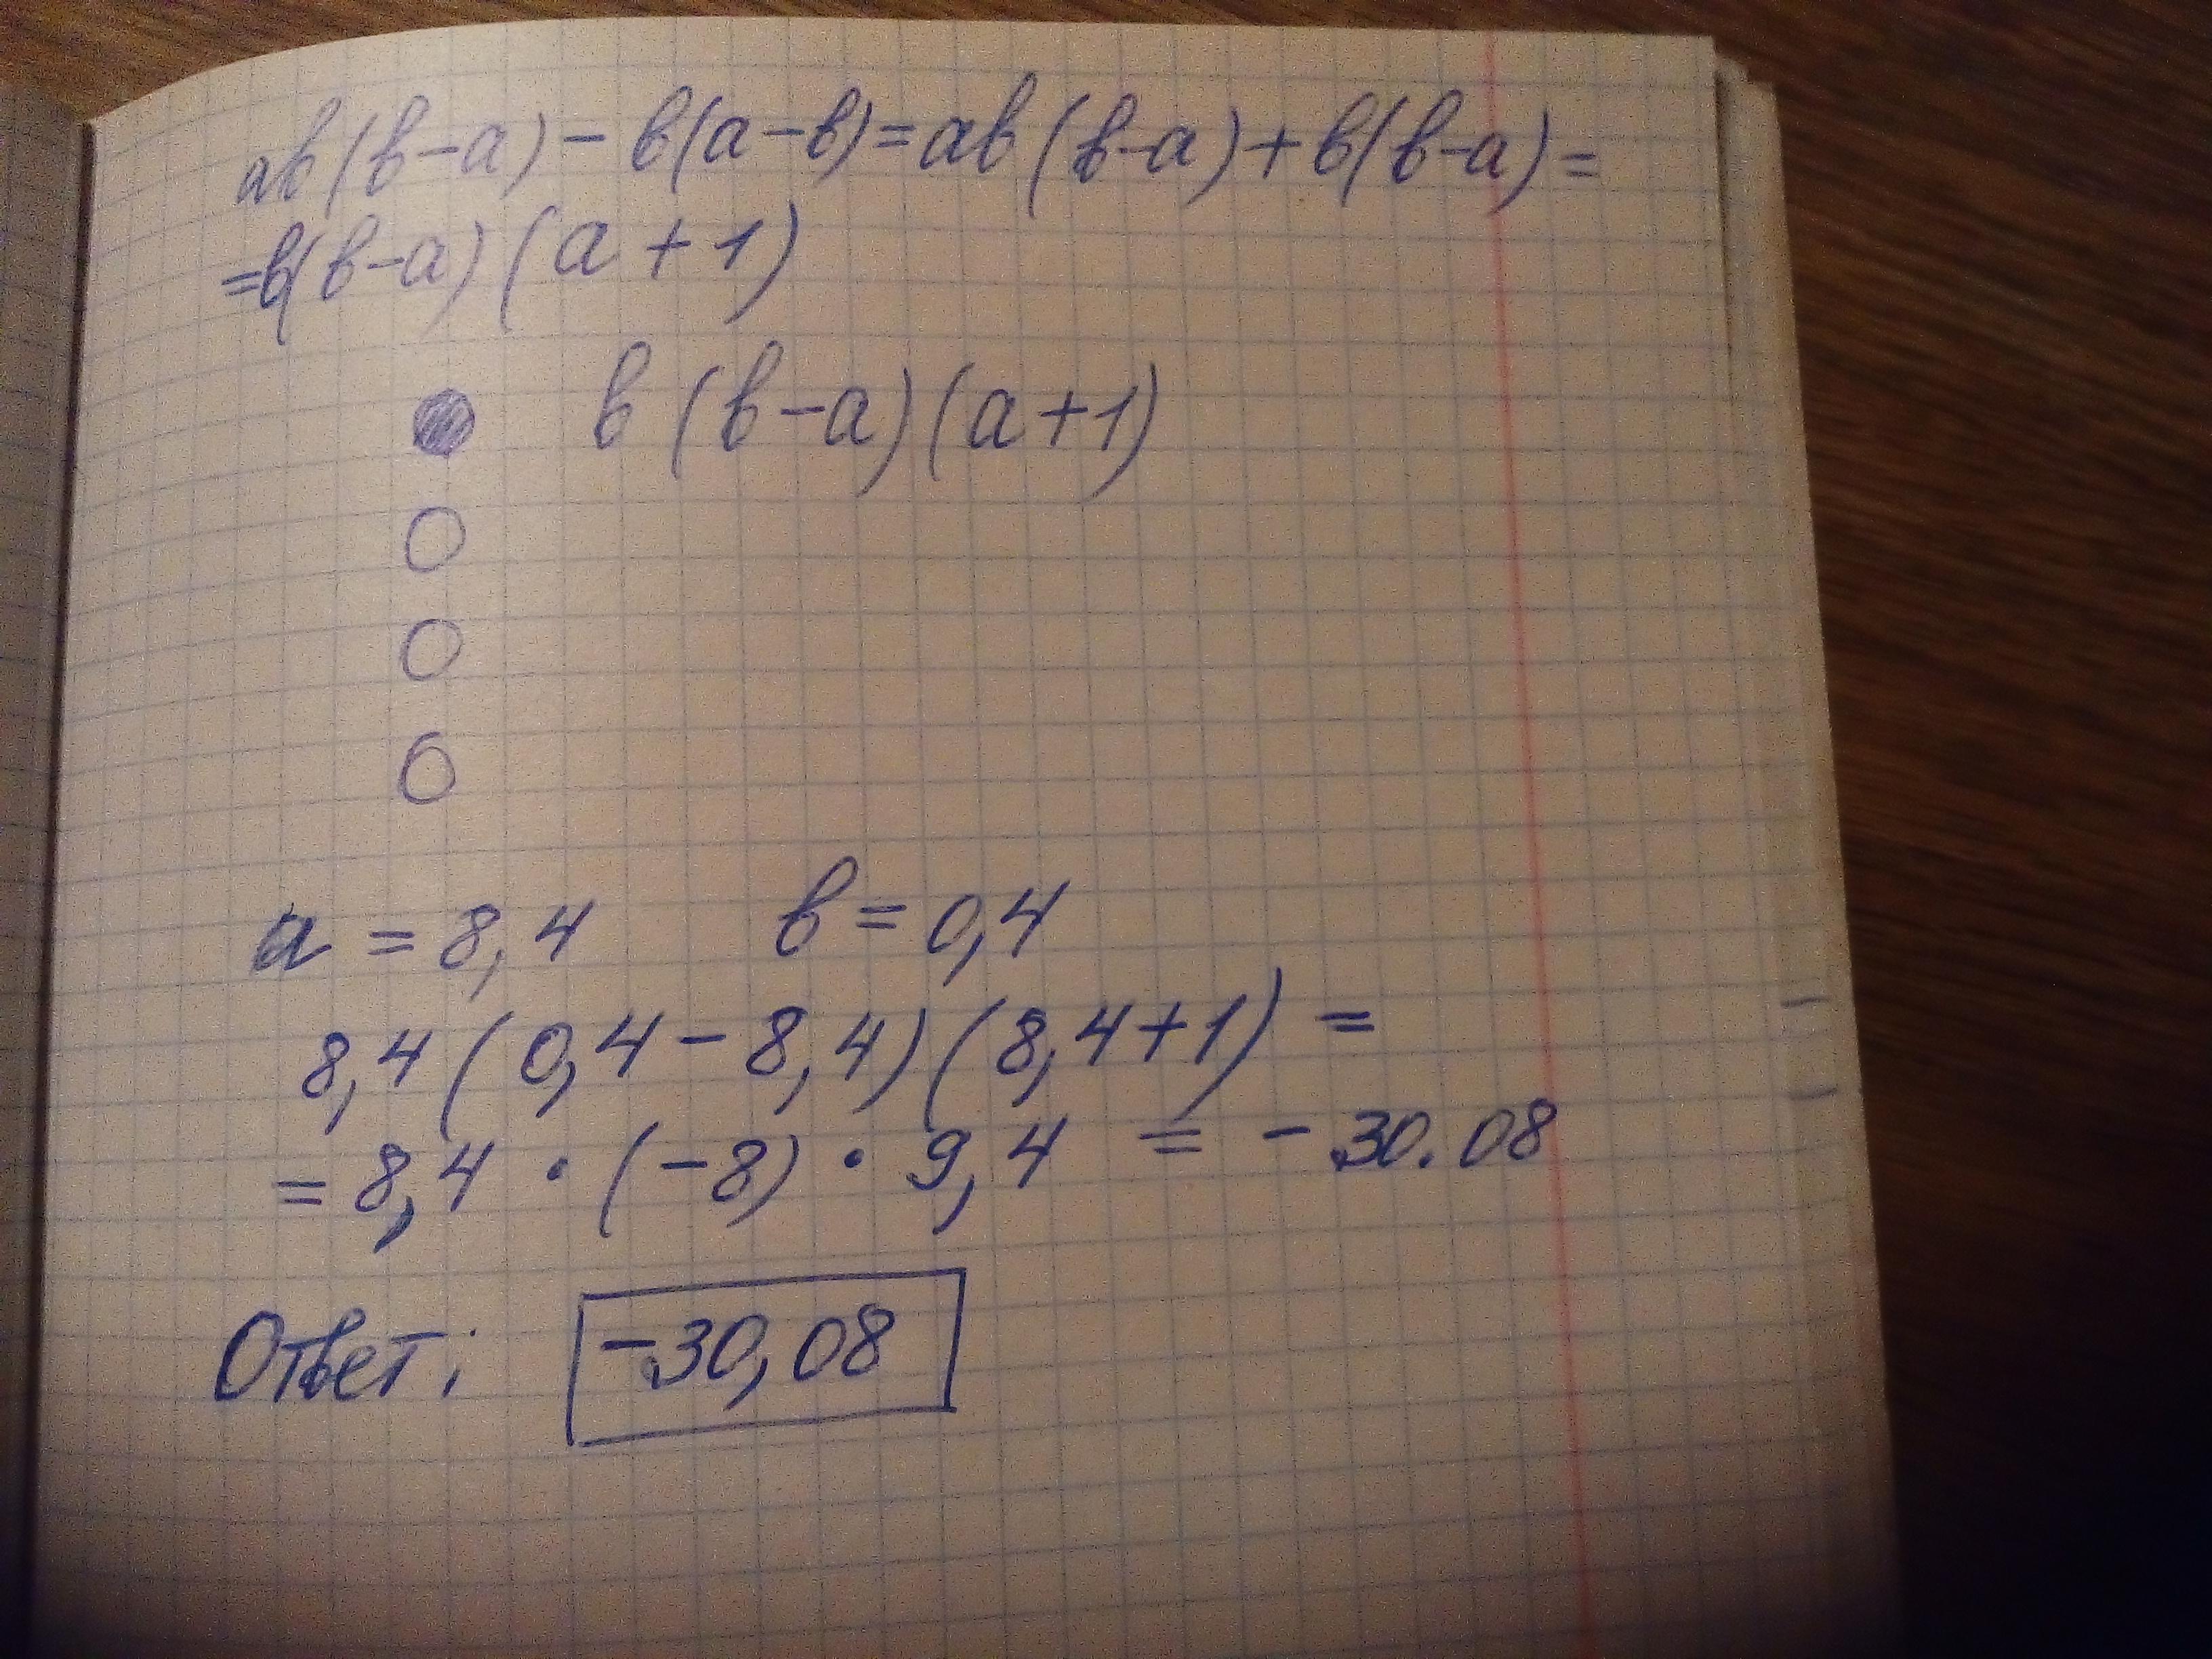 ав(в-а)-в(а-в)=ав(в-а)+в(в-а)=
=в(в-а)(а+1)
в(в-а)(а+1)
а=8,4 в=0,4
8,4(0,4-8,4)(8,4+1)=
=8,4·(-8)·9,4=-30.08
Ответ: -30,08